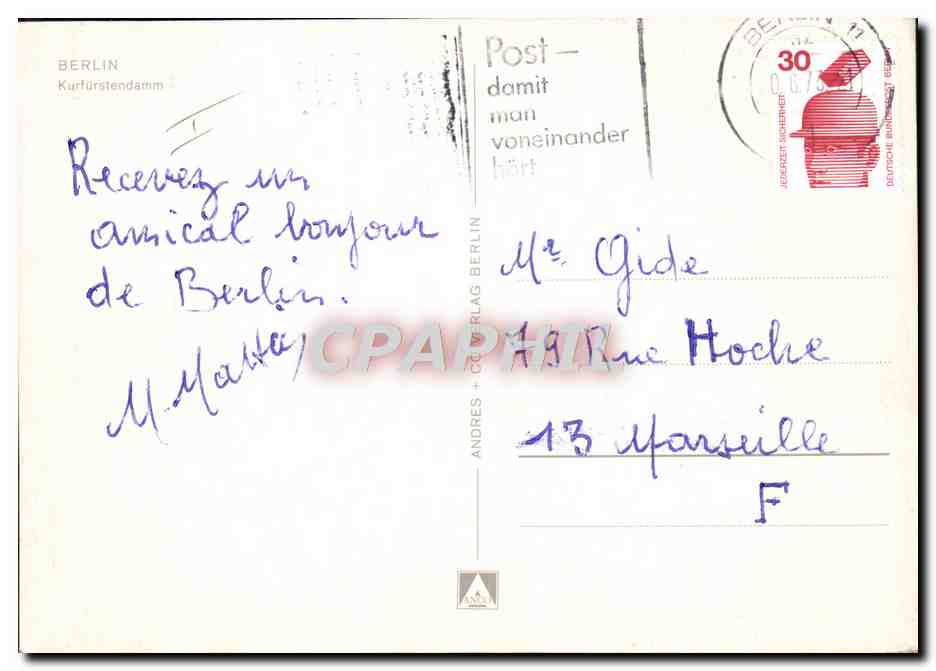 BERLIN
Kurfürstendamm
Post –
damit
man
voneinander
hört
BERLIN 11
30
JEDERZEIT SICHERHEIT
DEUTSCHE BUNDESPOST BERLIN
Recevez un
amical bonjour
de Berlin.
ANDRES + CO VERLAG BERLIN
CPAPHIL
Mr. Gide
79 Rue Hoche
13 Marseille
F
ANCO